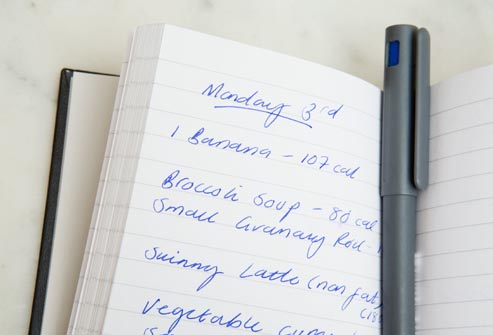 Monday 3rd
1 Banana - 107 cal
Broccoli Soup - 80 cal
Small Granary Roll - 1
Skinny Latte (non fat
Vegetable